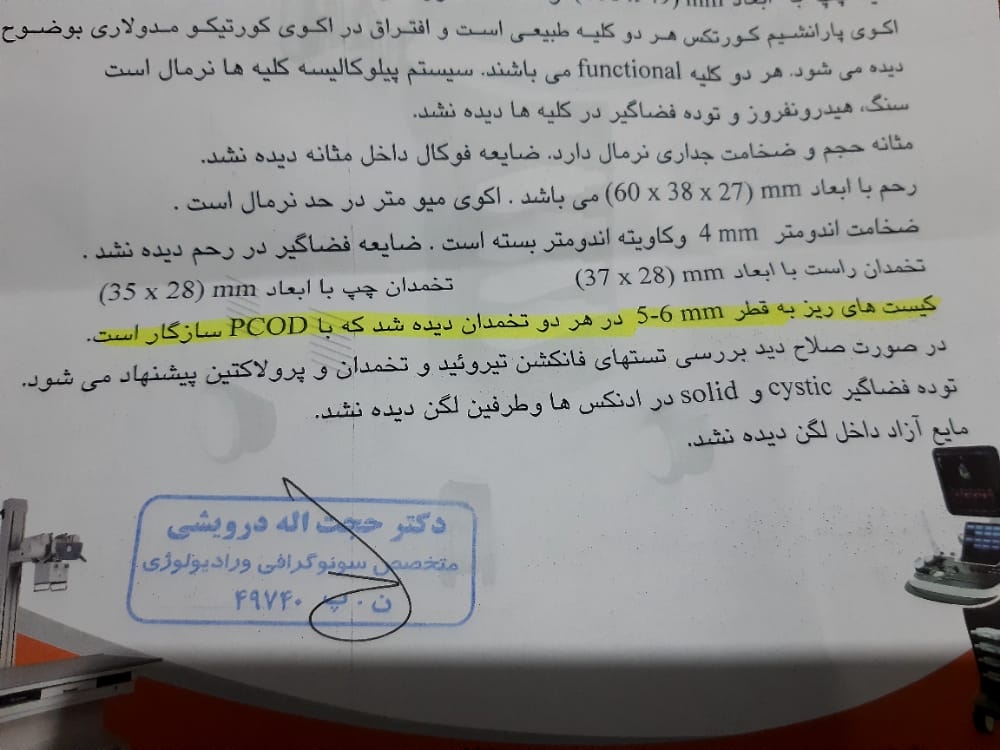 چپ با ابعاد mm
اکوی پارانشیم کورتکس هر دو کلیه طبیعی است و افتراق در اکوی کورتیکو مدولاری بوضوح
دیده می شود. هر دو کلیه functional می باشند. سیستم پیلوکالیسه کلیه ها نرمال است
سنگ، هیدرونفروز و توده فضاگیر در کلیه ها دیده نشد.
مثانه حجم و ضخامت جداری نرمال دارد. ضایعه فوکال داخل مثانه دیده نشد.
رحم با ابعاد mm (60 x 38 x 27) می باشد . اکوی میو متر در حد نرمال است .
ضخامت اندومتر 4 mm وکاویته اندومتر بسته است . ضایعه فضاگیر در رحم دیده نشد .
تخمدان راست با ابعاد mm (37 x 28) تخمدان چپ با ابعاد mm (35 x 28)
کیست های ریز به قطر 5-6 mm در هر دو تخمدان دیده شد که با PCOD سازگار است.
در صورت صلاح دید بررسی تستهای فانکشن تیروئید و تخمدان و پرولاکتین پیشنهاد می شود.
توده فضاگیر cystic و solid در ادنکس ها وطرفین لگن دیده نشد.
مایع آزاد داخل لگن دیده نشد.
دکتر حجت اله درویشی
متخصص سونوگرافی ورادیولوژی
ن . پ ۴۹۷۴۰